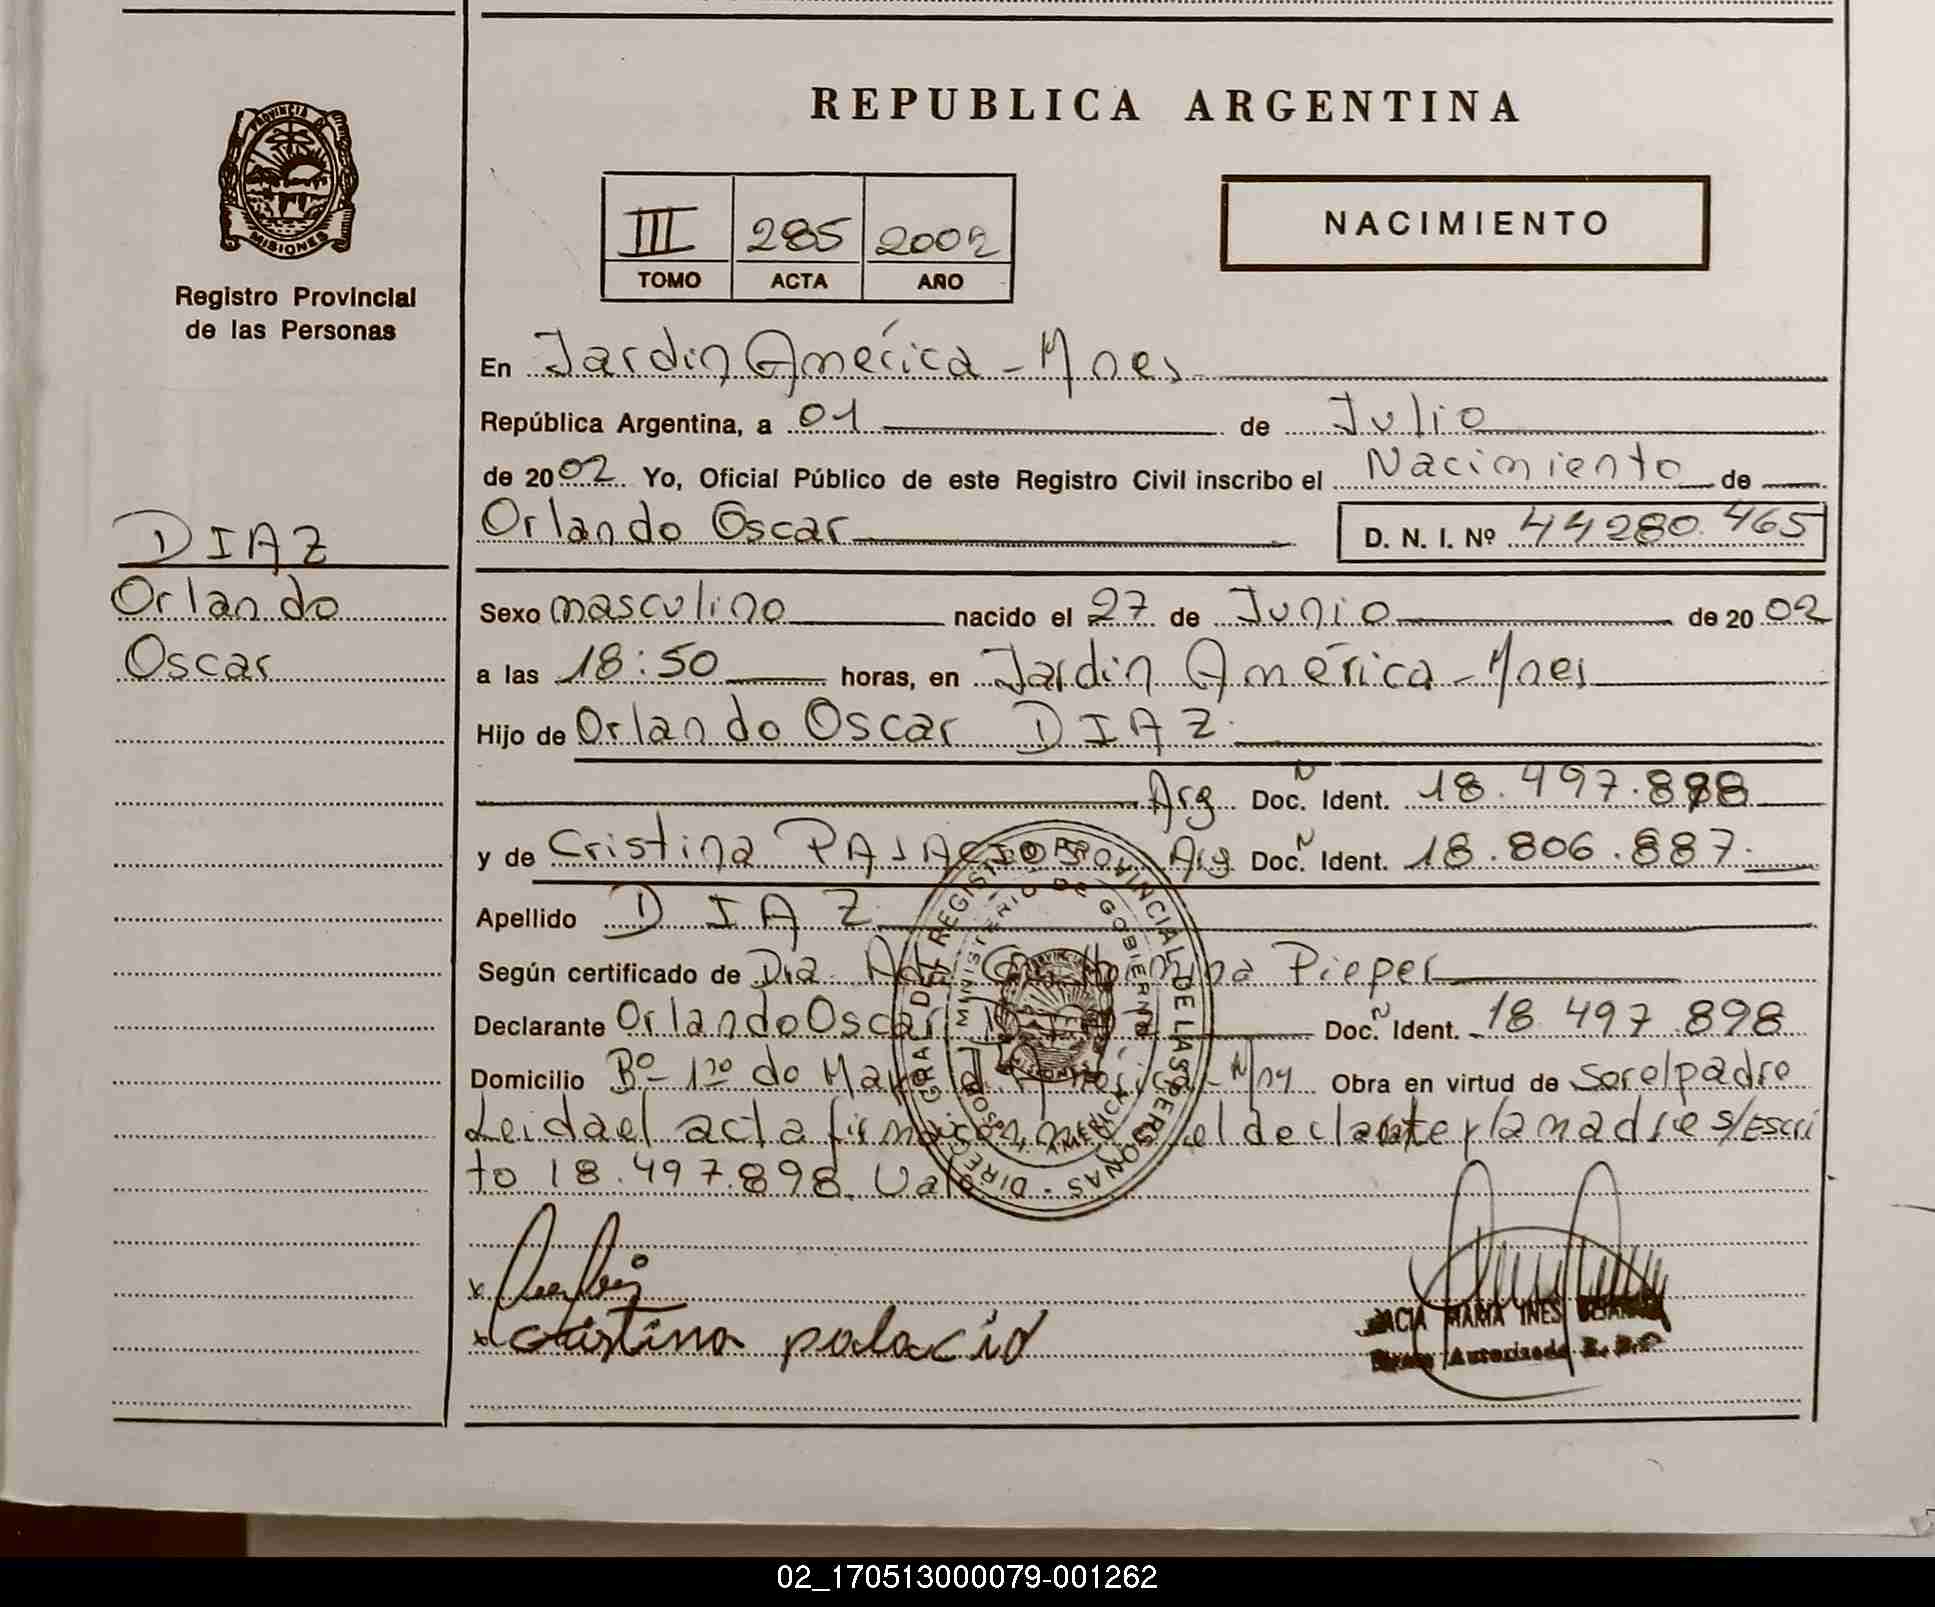 REPUBLICA ARGENTINA
PROVINCIA DE
MISIONES
Registro Provincial
de las Personas
III 285 2002
TOMO ACTA AÑO
NACIMIENTO
En Jardin América - Mnes
República Argentina, a 01 de Julio
de 2002 Yo, Oficial Público de este Registro Civil inscribo el Nacimiento de
Orlando Oscar D. N. I. Nº 44280.465
DIAZ
Orlando
Oscar
Sexo masculino nacido el 27 de Junio de 2002
a las 18:50 horas, en Jardin América - Mnes
Hijo de Orlando Oscar DIAZ
Arg Doc. Ident. 18.497.898
y de Cristina PALACIO Arg Doc. Ident. 18.806.887
Apellido DIAZ
Según certificado de Dra. Pieper
Declarante Orlando Oscar Doc. Ident. 18 497 898
Domicilio Bº 1º de Obra en virtud de ser el padre
Leida el acta el declarante y la madre s/Escri
to 18.497.898. Vale
DIRECC. GRAL DEL REGISTRO PROVINCIAL DE LAS PERSONAS
MINISTERIO DE GOBIERNO
AMERICA
Cristina palacio
MARIA INES
Autorizada
02_170513000079-001262